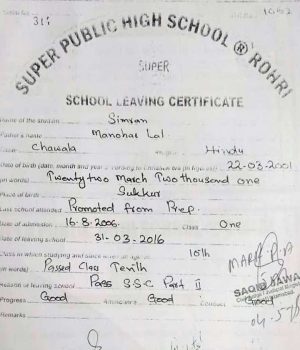 311
SUPER PUBLIC HIGH SCHOOL ® ROHRI
SUPER
SCHOOL LEAVING CERTIFICATE
Name of the student Simran
Father's name Manohar Lal
Chawala Hindu
Date of birth (date, month and year according to Christian era (in figures) 22-03-2001
(in words) Twenty two March Two thousand one
Place of birth Sukkur
Last school attended Promoted from Prep.
Date of admission 16-8-2006. Class One
Date of leaving school 31-03-2016
Class in which studying and since when 10th
(in words) Passed Class Tenth
Reason of leaving school Pass SSC Part II
Progress Good Attendance Good Conduct Good
Remarks